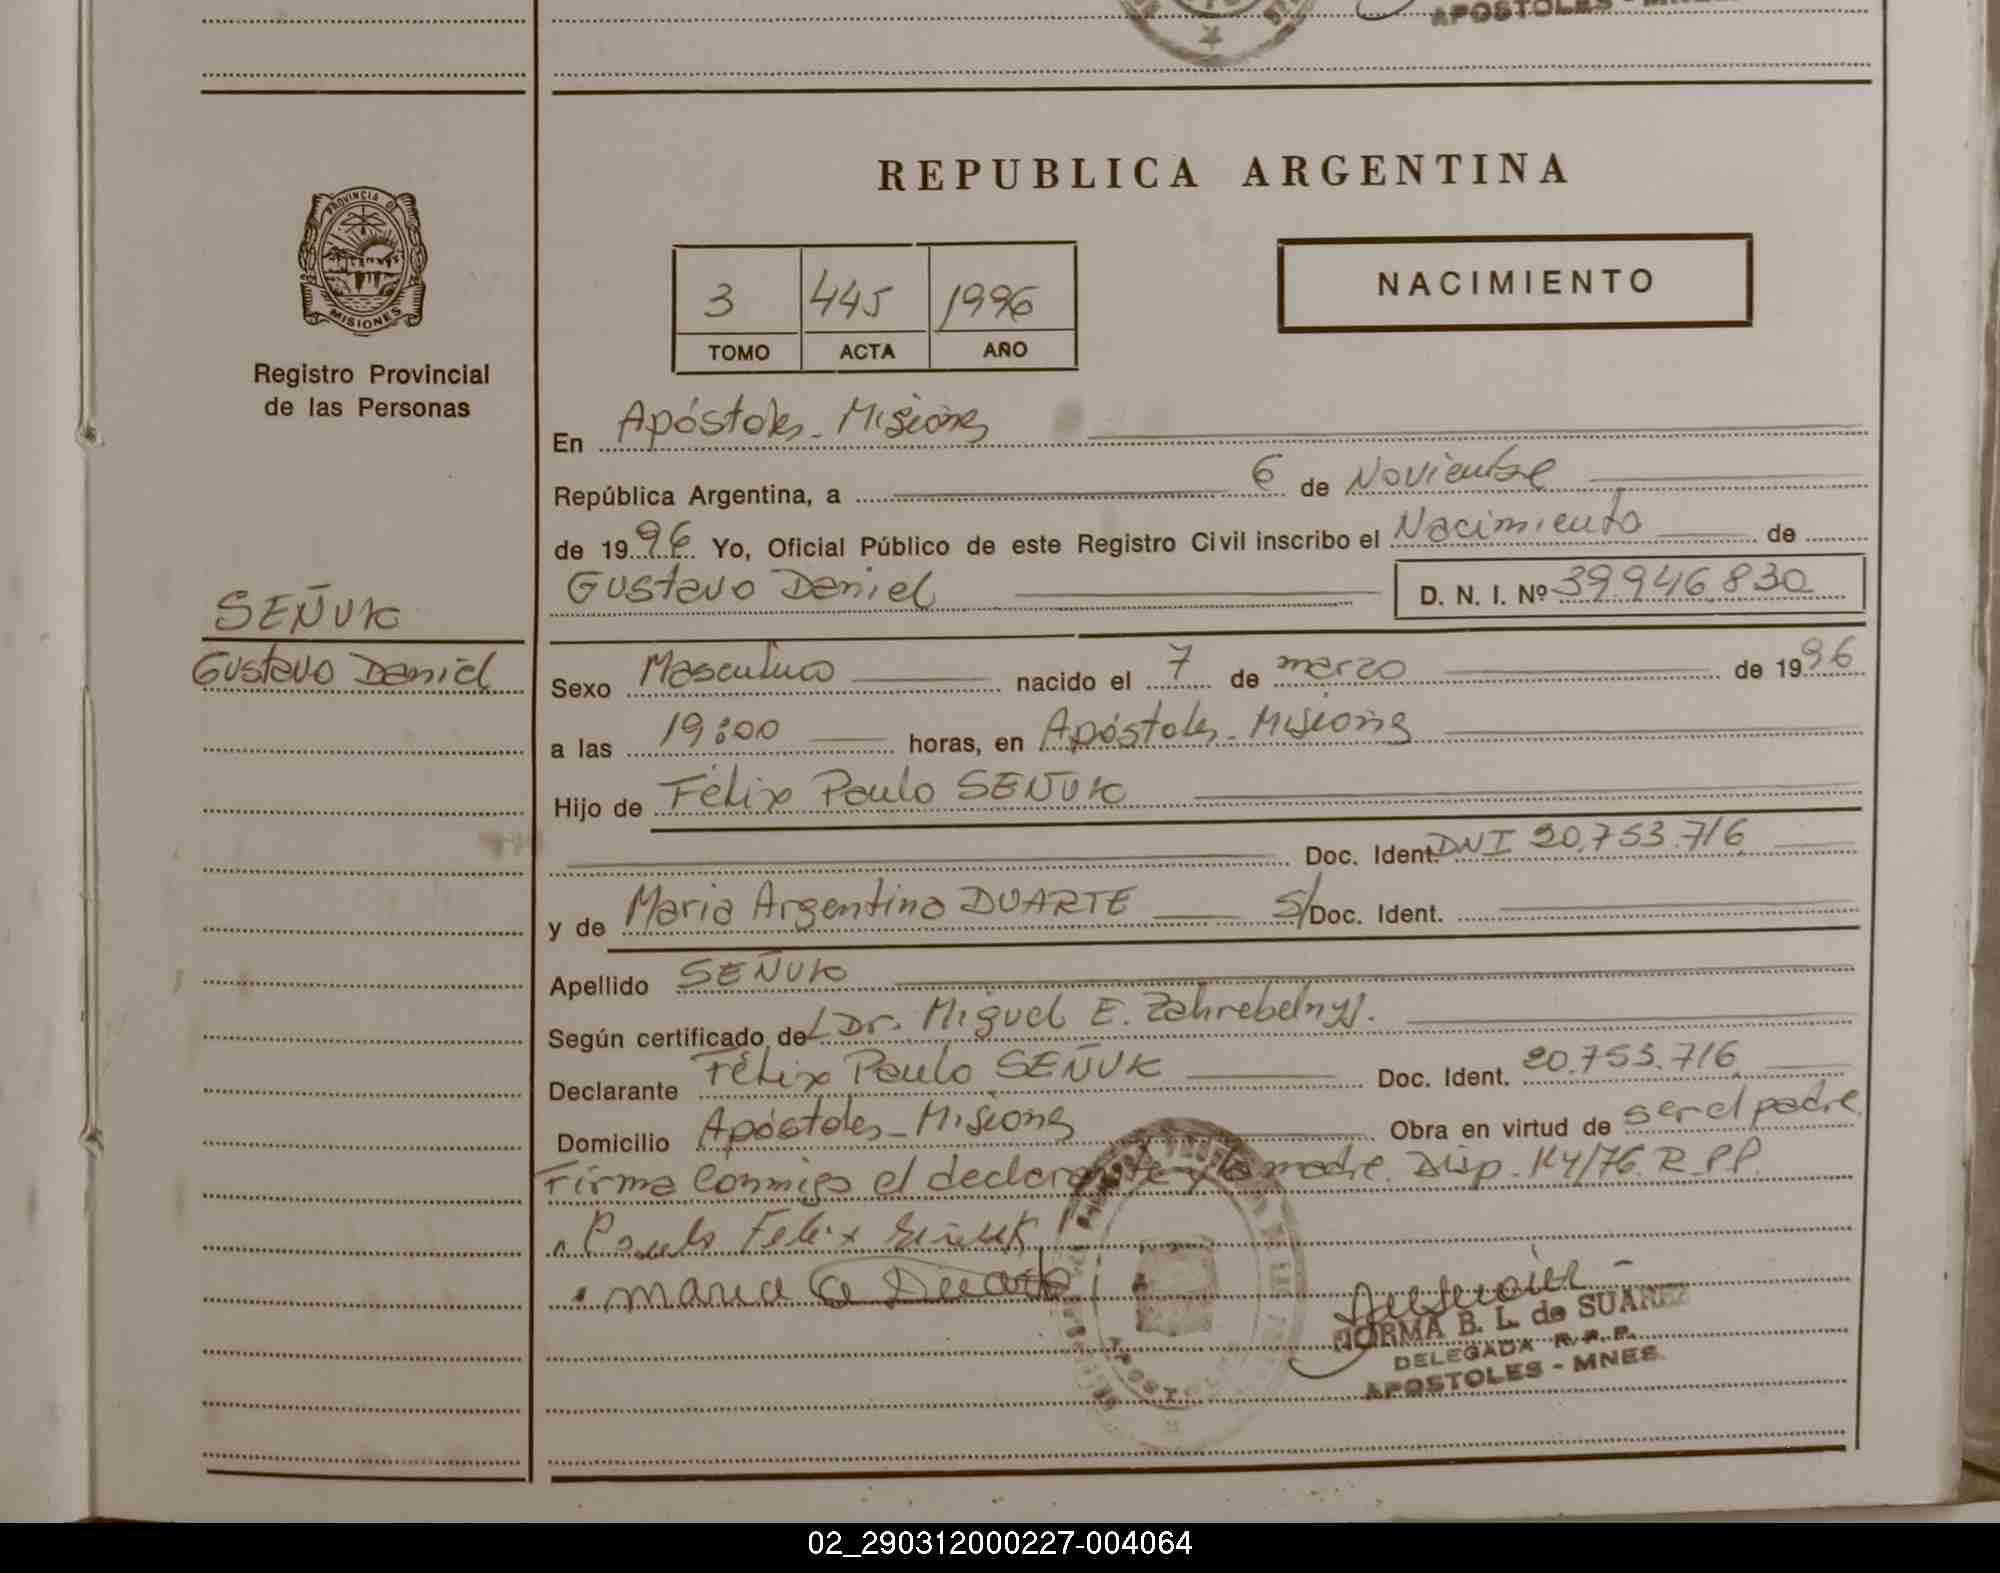 APOSTOLES - MNES.
REPUBLICA ARGENTINA
PROVINCIA DE
MISIONES
Registro Provincial
de las Personas
3 445 1996
TOMO ACTA AÑO
NACIMIENTO
En Apóstoles - Misiones
República Argentina, a 6 de Noviembre
de 1996 Yo, Oficial Público de este Registro Civil inscribo el Nacimiento de
Gustavo Daniel D. N. I. Nº 39.946.830
SEÑUK
Gustavo Daniel
Sexo Masculino nacido el 7 de marzo de 1996
a las 19:00 horas, en Apóstoles - Misiones
Hijo de Félix Paulo SEÑUK
Doc. Ident. DNI 20.753.716
y de Maria Argentina DUARTE S/Doc. Ident.
Apellido SEÑUK
Según certificado del Dr. Miguel E. Zahrebelnyj.
Declarante Félix Paulo SEÑUK Doc. Ident. 20.753.716
Domicilio Apóstoles - Misiones Obra en virtud de ser el padre.
Firma Conmigo el declarante y la madre. Disp. 14/76. R.P.P.
Paulo Felix Señuk
maria a Duarte
NORMA B. L. de SUAREZ
DELEGADA R. P. P.
APOSTOLES - MNES.
02_290312000227-004064